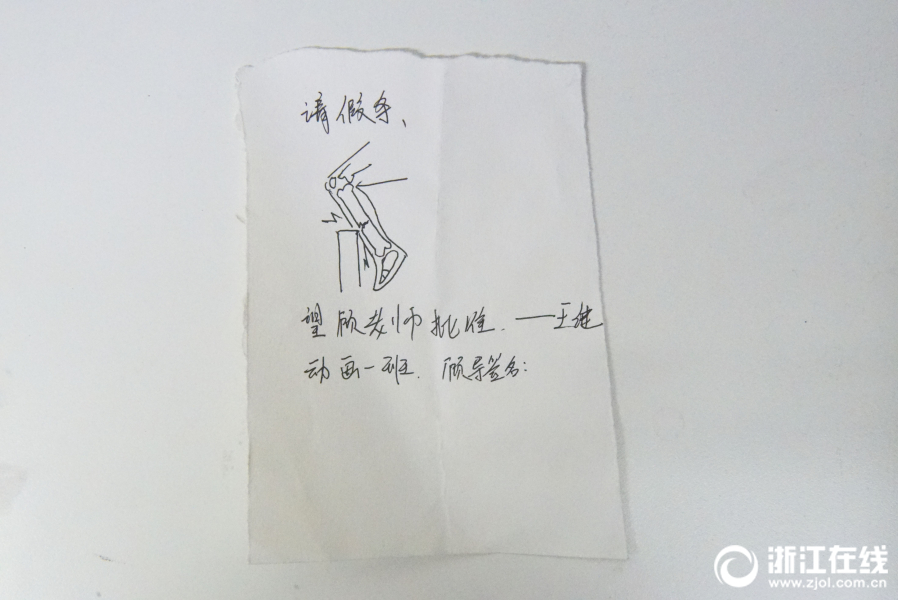 请假条、
望顾老师批准.——王继
动画一班. 顾导签名:
浙江在线
www.zjol.com.cn